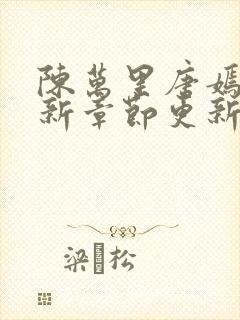 陳萬里唐嫣
新章節更新
梁 松